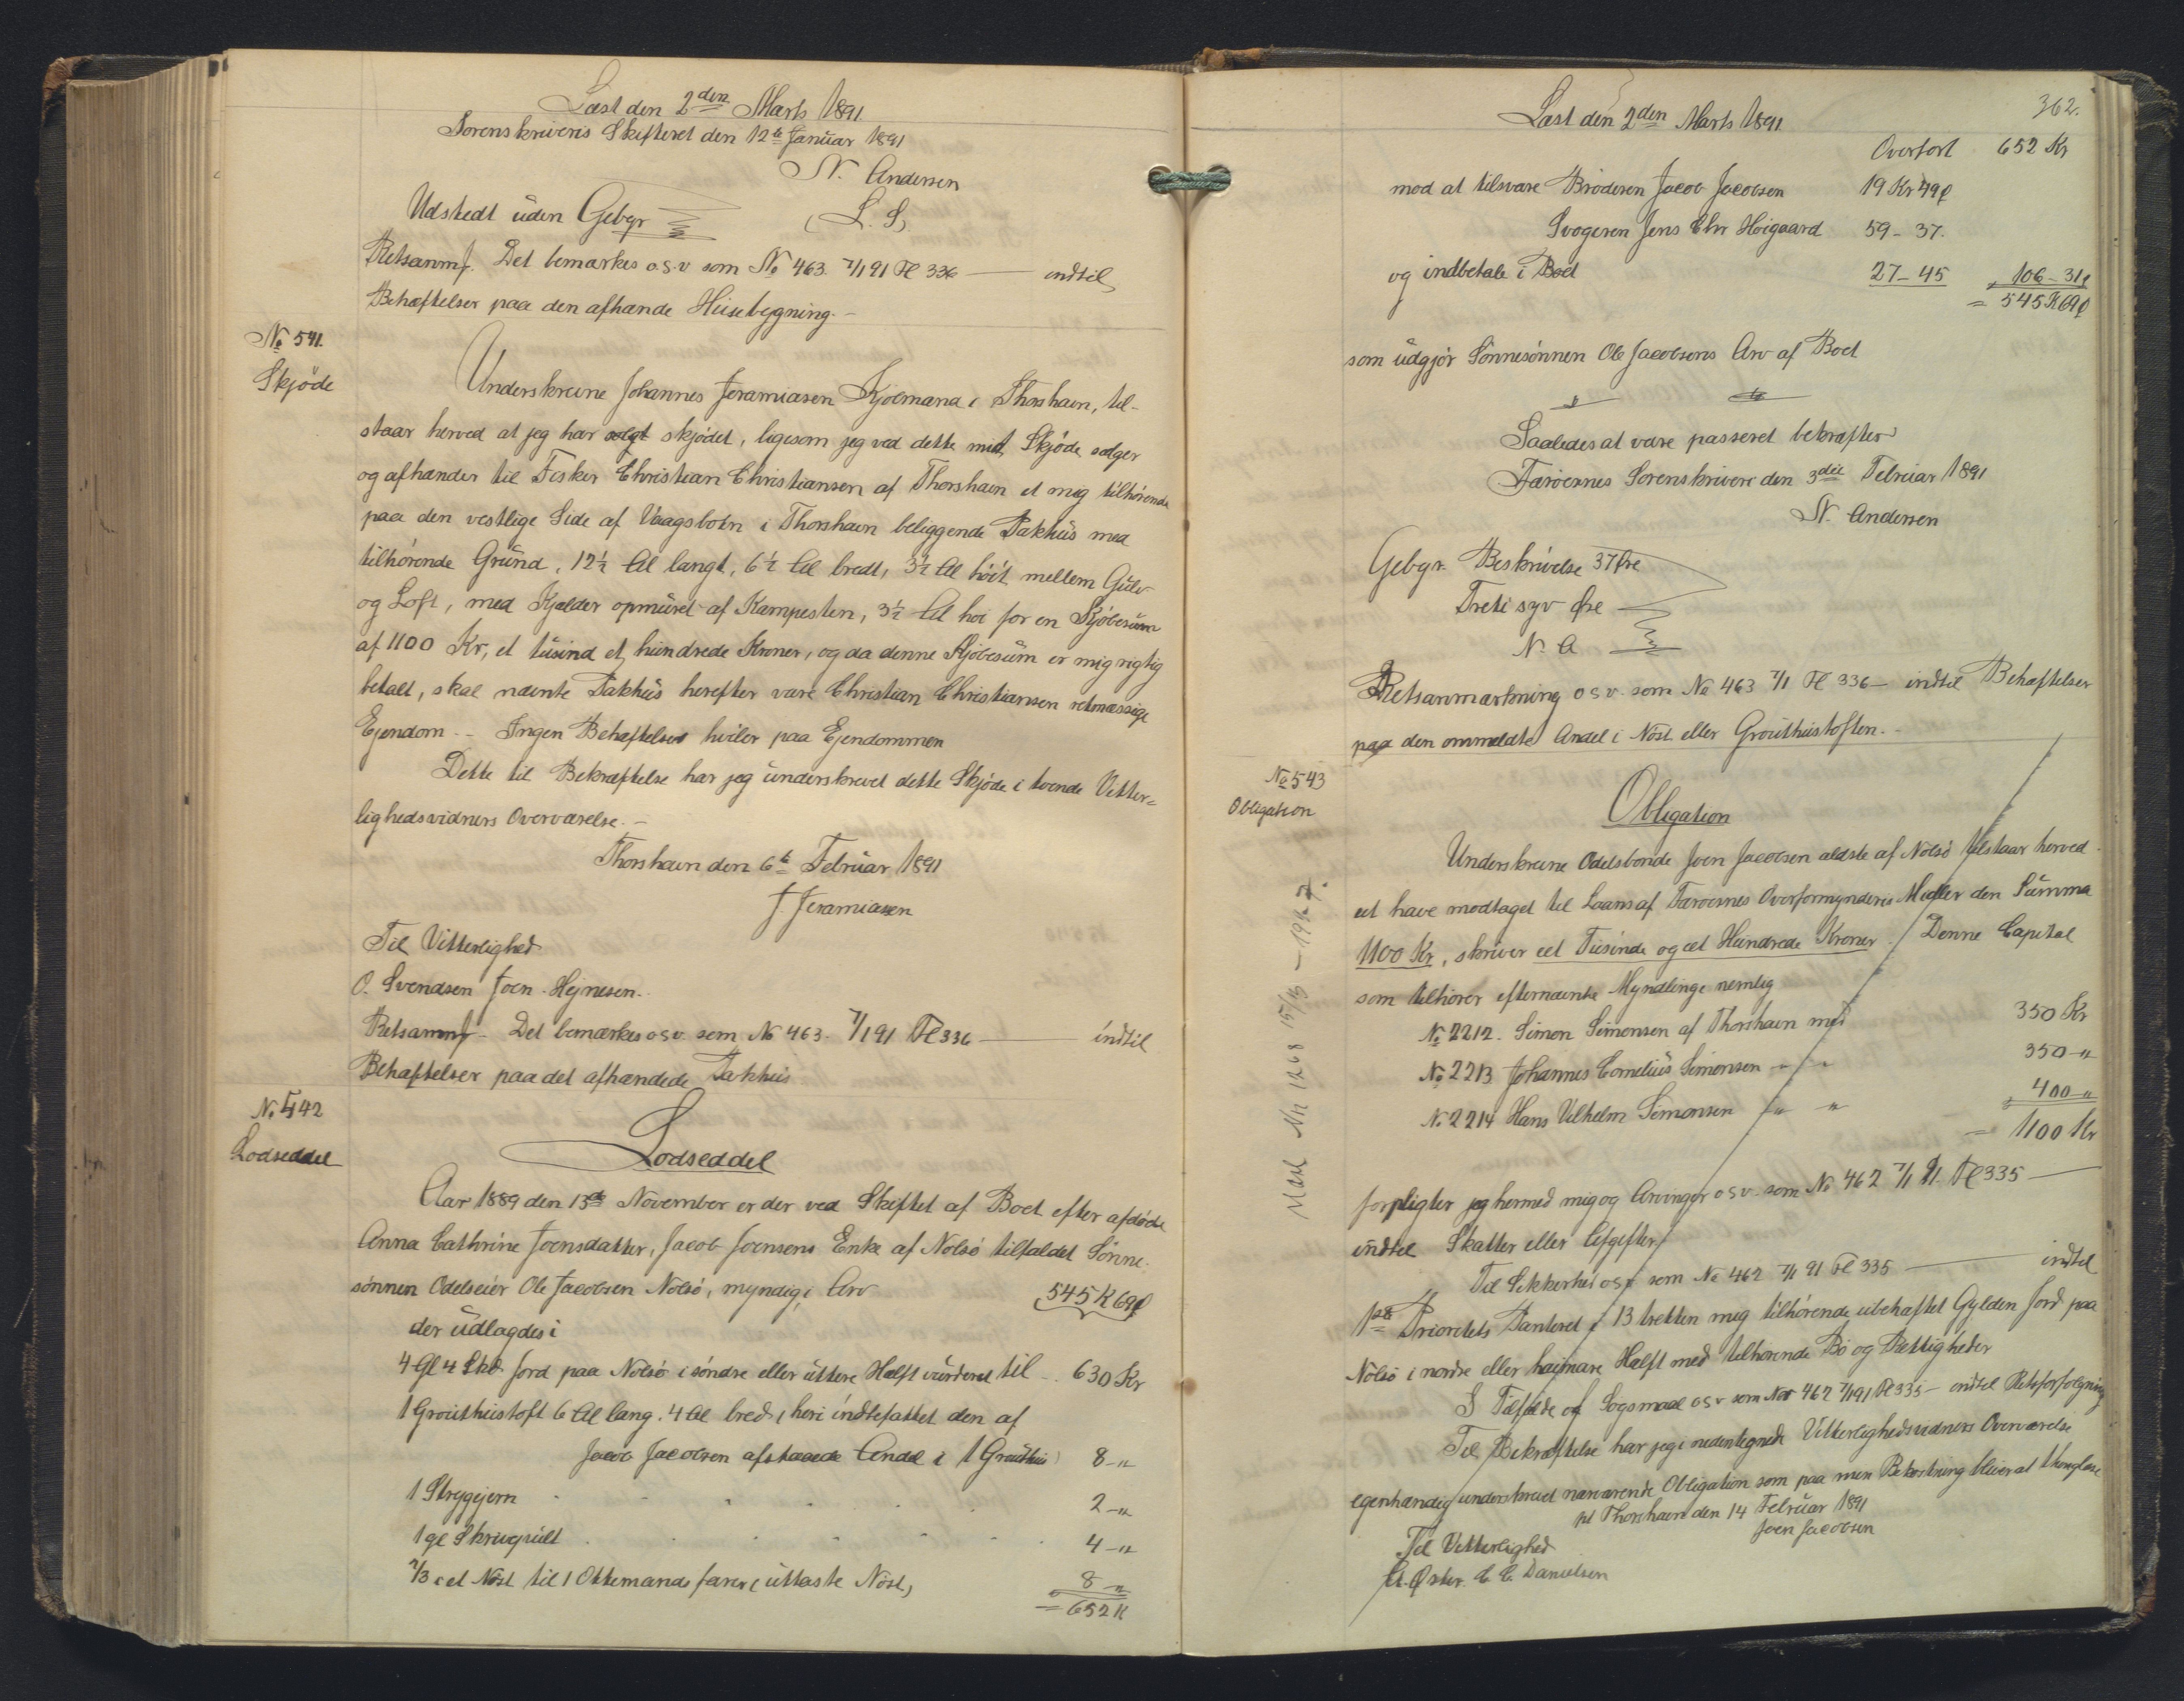 Læst den 2den Marts 1891
Sorenskriveris Skifteret den 12te Januar 1891
N. Andersen
Udstedt uden Gebyr (L. S)
Retsanmk. Det bemærkes o.s.v som No 463. 7/1 91 Fl 336 — indtil
Behæftelser paa den afhænde Huusebygning.-
No 541.
Skjøde
Underskrevne Johannes Jeramiasen Kjolmana i Thorshavn, til-
staar herved at jeg har solgt skjødet, ligesom jeg ved dette mit Skjøde sælger
og afhænder til Fisker Christian Christiansen af Thorshavn et mig tilhørende
paa den vestlige Side af Vaagsbotn i Thorshavn beliggende Pakhus med
tilhørende Grund, 12½ Al langt, 6½ Al bredt, 3½ Al höit mellem Gulv
og Loft, med Kjælder opmuret af Kampesten, 3½ Al høi for en Kjøbesum
af 1100 Kr, et tusind et hundrede Kroner, og da denne Kjøbesum er mig rigtig
betalt, skal nævnte Pakhus herefter være Christian Christiansen retmæssige
Ejendom.- Ingen Behæftelser hviler paa Ejendommen
Dette til Bekræftelse har jeg underskrevet dette Skjøde i tvende Vitter=
lighedsvidners Overværelse.-
Thorshavn den 6te Februar 1891
J. Jeramiasen
Til Vitterlighed
O. Svendsen Joen Hejnesen.
Retsanmk- Det bemærkes o.s.v. som No 463. 7/1 91 Fl 336 — indtil
Behæftelser paa det afhændede Pakhus
No 542
Lodseddel
Lodseddel
Aar 1889 den 13de November er der ved Skiftet af Boet efter afdøde
Anna Cathrine Joensdatter, Jacob Joensens Enke af Nolsø tilfaldet Sønne-
sønnen Odelseier Ole Jacobsen Nolsö, myndig, i Arv 545 K 69 ø
der udlagdes i
4 Gl 4 Skd. Jord paa Nolsø i søndre eller uttere Hælft vurderet til .. 630 Kr
1 Grouthustoft 6 Al lang. 4 Al bred, heri indbefattet den af
Jacob Jacobsen afstaaede Andel i 1 Grouthus) 8 - "
1 Strygejern 2 - "
1 gl Skrivepult 4 - "
2/3 i et Nöst til 1 Ottemandsfarer (uttaste Nöst) 8 - "
= 652 K
362.
Læst den 2den Marts 1891
Overført 652 Kr
mod at tilsvare Broderen Jacob Jacobsen 19 Kr 49 ø
Svogeren Jens Chr Höigaard 59 - 37.
og indbetale i Boet 27 - 45 106 - 31 ø
= 545 K 69 ø
som udgjör Sönnesönnen Ole Jacobsens Arv af Boet
Saaledes at være passeret bekræfter
Færöernes Sorenskriveri den 3die Februar 1891
N. Andersen
Gebyr. Beskrivelse 37 Øre
Treti syv Øre
N. A
Retsanmærkning o s v. som No 463 7/1 Fl 336 — indtil Behæftelser
paa den ommeldte Andel i Nöst eller Grouthustoften.-
No 543
Obligation
Obligation
Underskrevne Odelsbonde Joen Jacobsen ældste af Nolsö tilstaar herved
at have modtaget til Laans af Færöernes Overformynderis Midler den Summa
1100 Kr, skriver eet Tusinde og eet Hundrede Kroner. Denne Capital
som tilhører efternævnte Myndlinge nemlig
No 2212. Simon Simonsen af Thorshavn med 350 Kr
No 2213 Johannes Cornelius Simonsen " " 350 - "
No 2214 Hans Vilhelm Simonsen " " 400 - "
= 1100 Kr
forpligter jeg hermed mig og Arvinger o s v. som No 462 7/1 91. Fl 335 —
indtil Skatter eller Afgifter
Til Sikkerhed o s v som No 462 7/1 91 Fl 335 — indtil
1ste Prioritets Panteret i 13 tretten mig tilhørende ubehæftet Gylden Jord paa
Nolsö i nordre eller haimare Hælft med tilhørende Bö og Rettigheder
I Tilfælde af Sogsmaal o s v som No 462 7/1 91 Fl 335 — indtil Retsforfølgning
Til Bekræftelse har jeg i nedentegnede Vitterlighedsvidners Overværelse
egenhændig underskrevet nærværende Obligation som paa min Bekostning bliver at thinglæse
pt Thorshavn den 14 Februar 1891
Joen Jacobsen
Til Vitterlighed
A. Øster. C. C. Danielsen